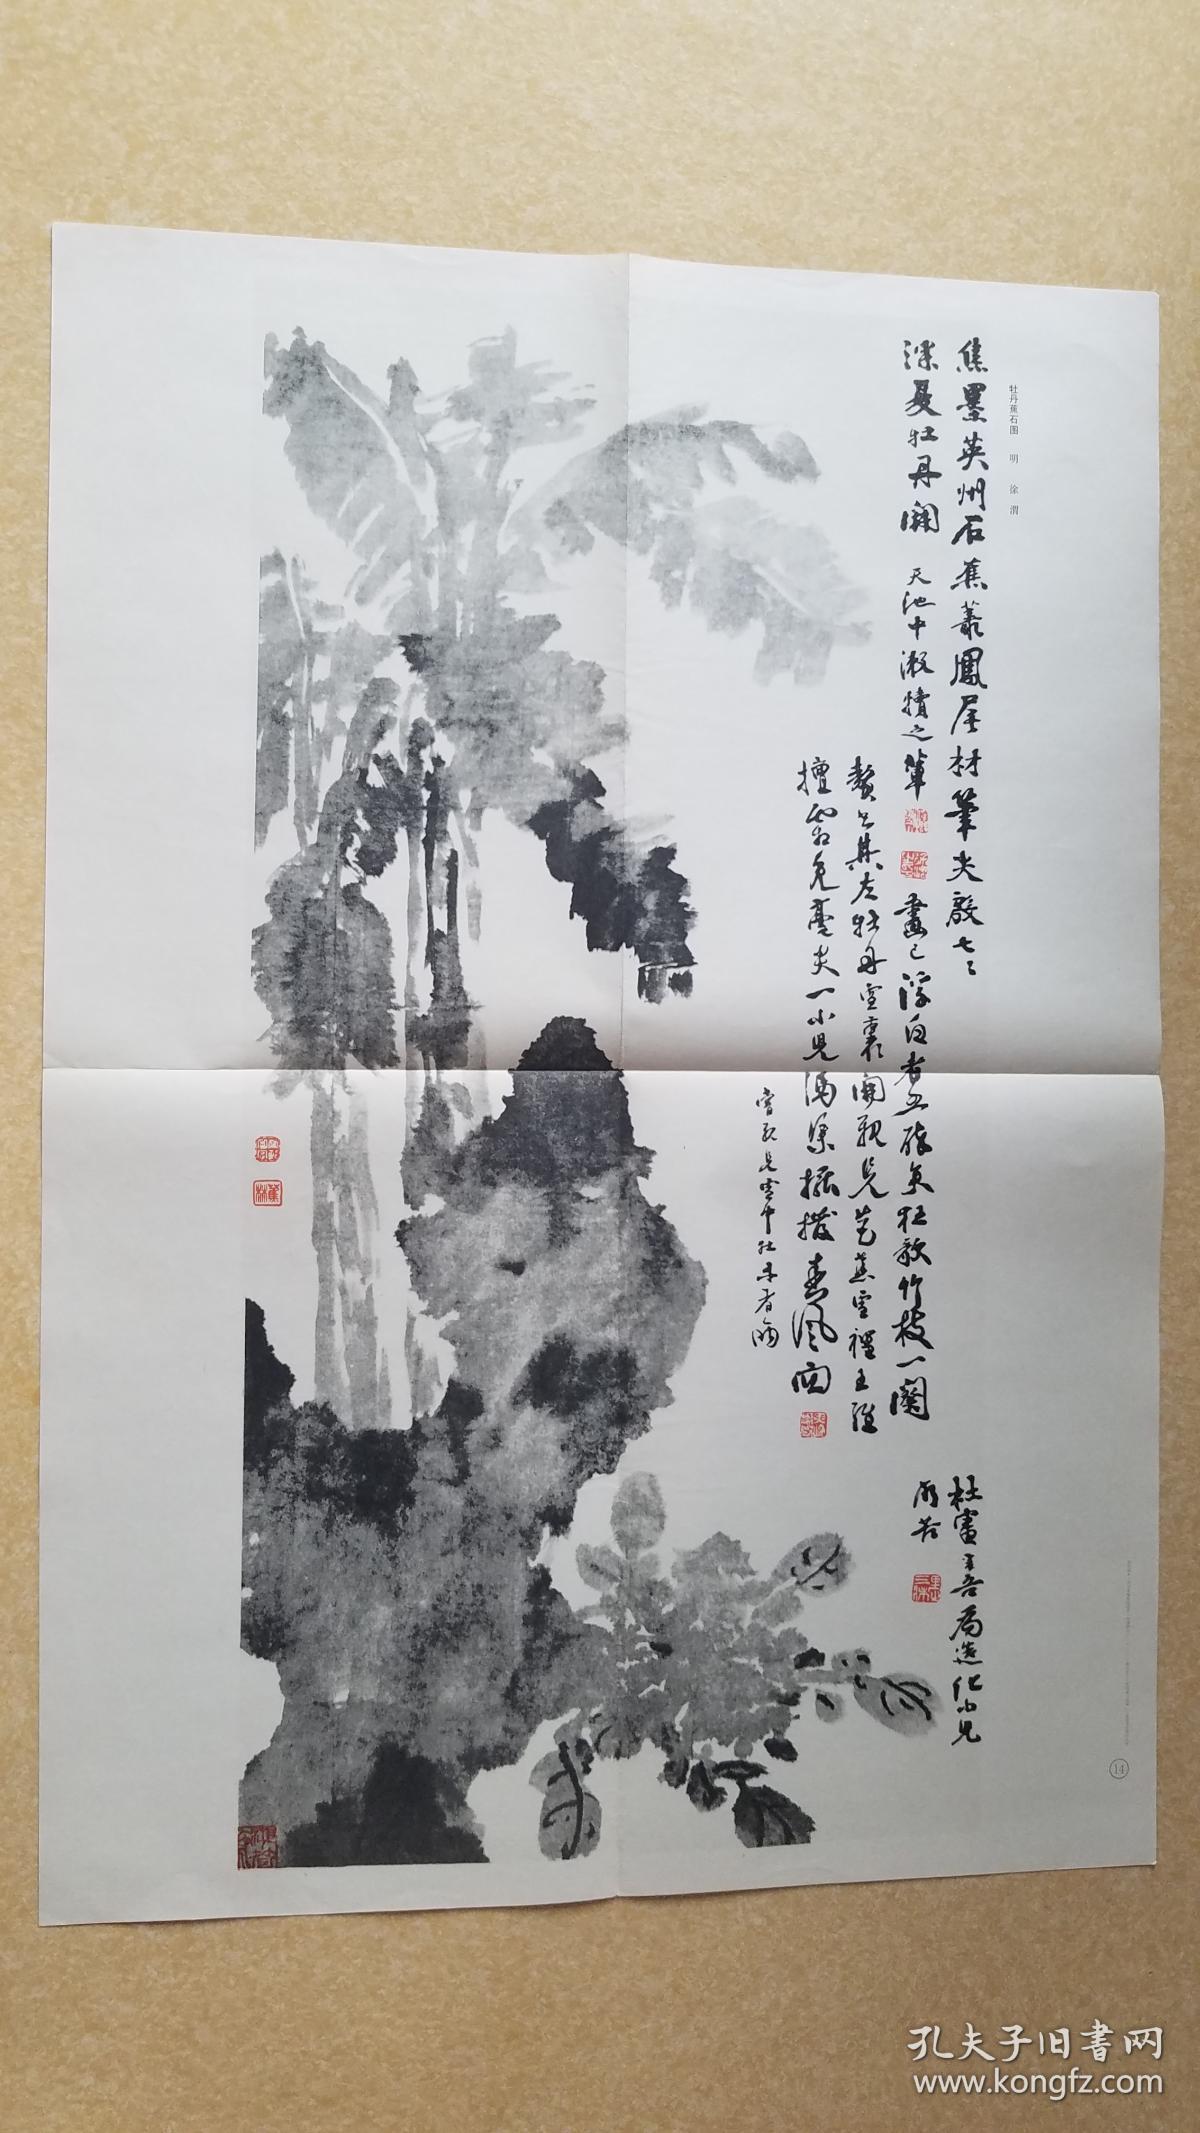 牡丹蕉石图　明　徐渭
焦墨英州石蕉叢鳳尾材筆尖殷七七
深夏牡丹開　天池中漱犢之輩
畫已浮白者五醉矣狂歌竹枝一闋
贅書其左牡丹雪裏開親見芭蕉雪裡王維
擅霜兔毫尖一小兒馮渠搖撥春風面
嘗親見雪中牡丹者兩
杜審言吾為造化小兒
所苦
蕉林
14
孔夫子旧书网
www.kongfz.com